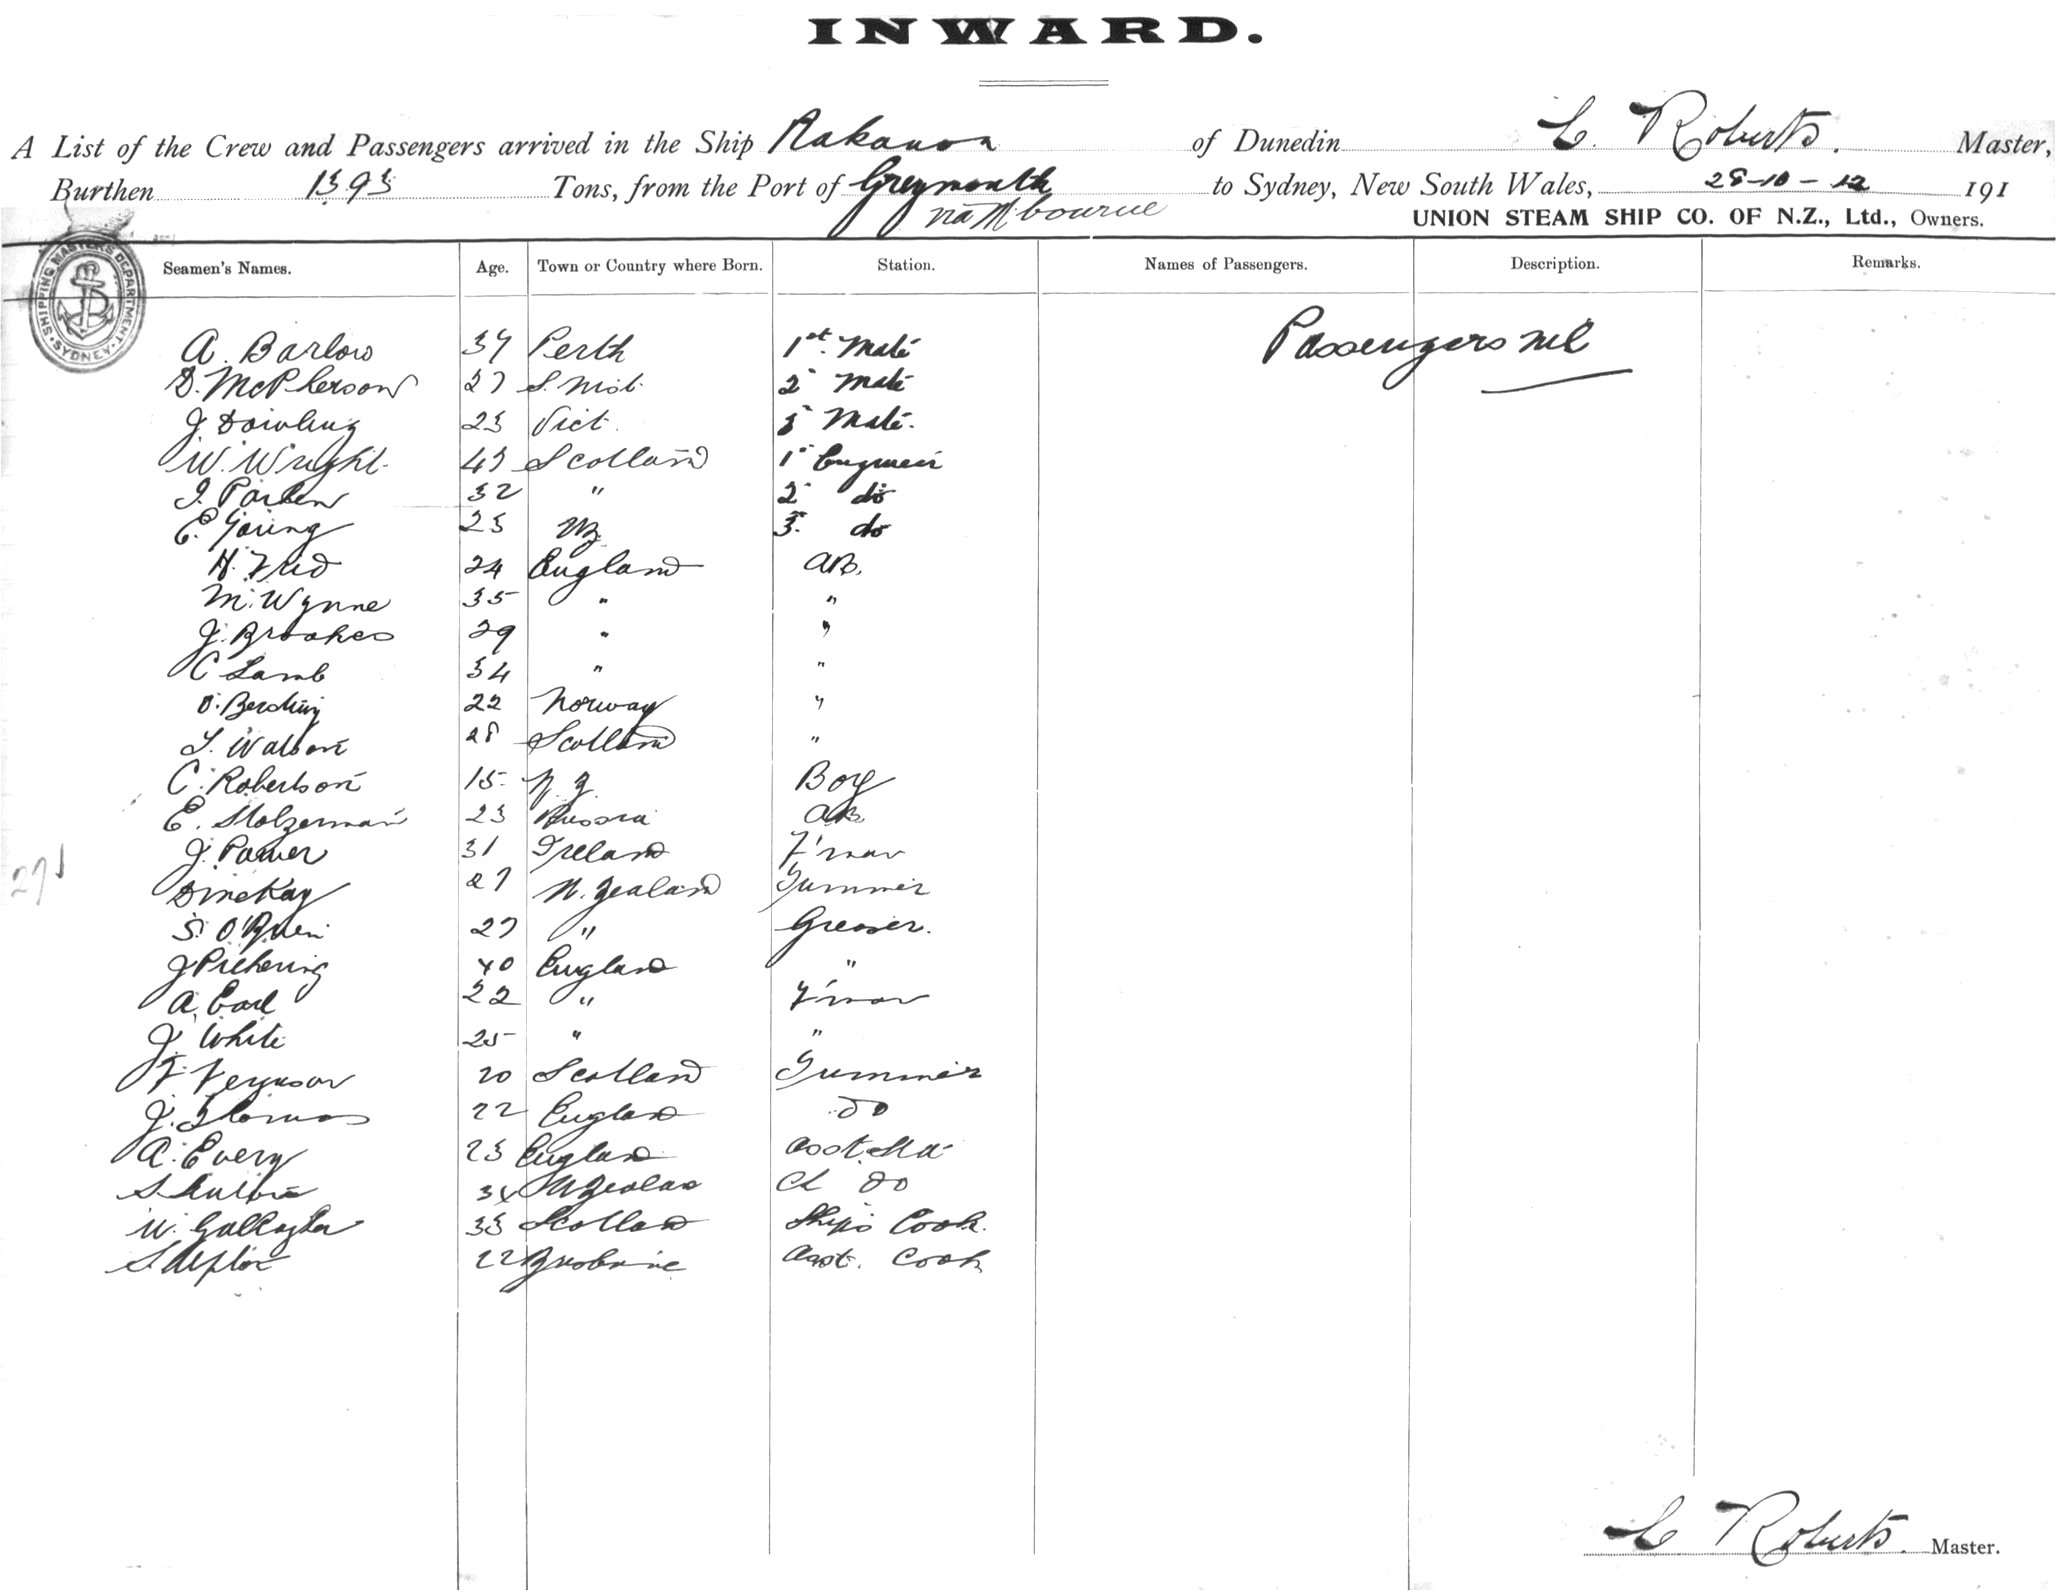 INWARD.
A List of the Crew and Passengers arrived in the Ship Rakanoa of Dunedin C. Roberts. Master,
Burthen 1393 Tons, from the Port of Greymouth to Sydney, New South Wales, 28-10-12 191
via Mbourne UNION STEAM SHIP CO. OF N.Z., Ltd., Owners.
SHIPPING MASTER'S DEPARTMENT. SYDNEY.
Seamen's Names. Age. Town or Country where Born. Station. Names of Passengers. Description. Remarks.
Passengers nil
A. Barlow 37 Perth 1st. Mate
D. McPherson 27 2 Mate
J. Dowling 23 Vict. 3 Mate.
W. Wright. 43 Scotland 1 Engineer
32 " 2 do
E. Young 23 NZ. 3. do
H. 24 England AB.
M. Wynne 35 " "
J. Brookes 29 " "
C Lamb 34 " "
22 Norway "
Watson 28 Scotland "
C. Robertson 15 N Z. Boy
E. Stolzerman 23 Russia AB.
J. Power 31 Ireland F'man
D McKay 27 N. Zealand Trimmer
S. O'Brien 27 " Greaser.
J Pickering 40 England "
A. Earl 22 " F'man
J White 25 " "
F Ferguson 20 Scotland Trimmer
J. Thomas 22 England do
A. Every 23 England asst. Std
34 N Zealand Ch do
W. Gallagher 33 Scotland Ship's Cook.
S Upton 22 Brisbane Asst. Cook
271
C Roberts. Master.